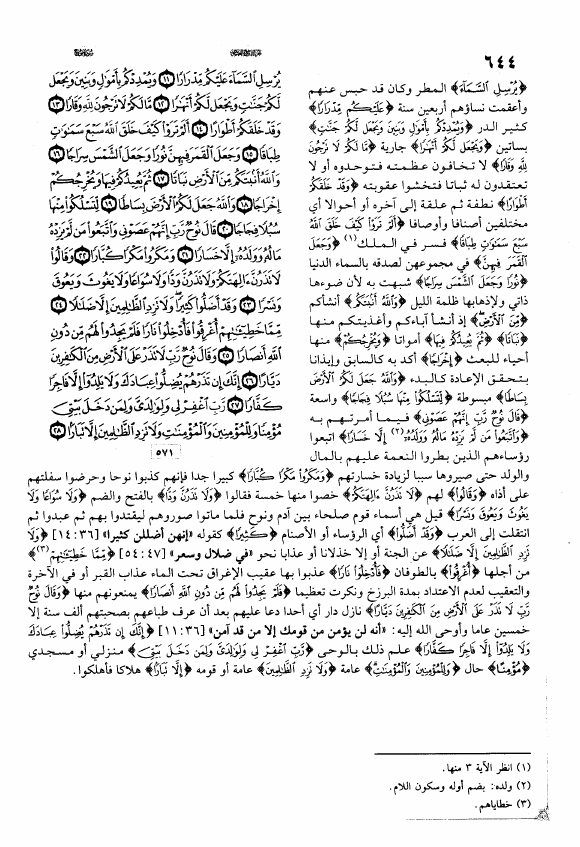 ٦٤٤
يُرْسِلِ السَّمَآءَ عَلَيْكُم مِّدْرَارًا ١١ وَيُمْدِدْكُم بِأَمْوَٰلٍ وَبَنِينَ وَيَجْعَل
لَّكُمْ جَنَّٰتٍ وَيَجْعَل لَّكُمْ أَنْهَٰرًا ١٢ مَّا لَكُمْ لَا تَرْجُونَ لِلَّهِ وَقَارًا ١٣
وَقَدْ خَلَقَكُمْ أَطْوَارًا ١٤ أَلَمْ تَرَوْا۟ كَيْفَ خَلَقَ ٱللَّهُ سَبْعَ سَمَٰوَٰتٍ
طِبَاقًا ١٥ وَجَعَلَ ٱلْقَمَرَ فِيهِنَّ نُورًا وَجَعَلَ ٱلشَّمْسَ سِرَاجًا ١٦
وَٱللَّهُ أَنۢبَتَكُم مِّنَ ٱلْأَرْضِ نَبَاتًا ١٧ ثُمَّ يُعِيدُكُمْ فِيهَا وَيُخْرِجُكُمْ
إِخْرَاجًا ١٨ وَٱللَّهُ جَعَلَ لَكُمُ ٱلْأَرْضَ بِسَاطًا ١٩ لِّتَسْلُكُوا۟ مِنْهَا
سُبُلًا فِجَاجًا ٢٠ قَالَ نُوحٌ رَّبِّ إِنَّهُمْ عَصَوْنِى وَٱتَّبَعُوا۟ مَن لَّمْ يَزِدْهُ
مَالُهُۥ وَوَلَدُهُۥٓ إِلَّا خَسَارًا ٢١ وَمَكَرُوا۟ مَكْرًا كُبَّارًا ٢٢ وَقَالُوا۟
لَا تَذَرُنَّ ءَالِهَتَكُمْ وَلَا تَذَرُنَّ وَدًّا وَلَا سُوَاعًا وَلَا يَغُوثَ وَيَعُوقَ
وَنَسْرًا ٢٣ وَقَدْ أَضَلُّوا۟ كَثِيرًا وَلَا تَزِدِ ٱلظَّٰلِمِينَ إِلَّا ضَلَٰلًا ٢٤
مِّمَّا خَطِيٓـَٰٔتِهِمْ أُغْرِقُوا۟ فَأُدْخِلُوا۟ نَارًا فَلَمْ يَجِدُوا۟ لَهُم مِّن دُونِ
ٱللَّهِ أَنصَارًا ٢٥ وَقَالَ نُوحٌ رَّبِّ لَا تَذَرْ عَلَى ٱلْأَرْضِ مِنَ ٱلْكَٰفِرِينَ
دَيَّارًا ٢٦ إِنَّكَ إِن تَذَرْهُمْ يُضِلُّوا۟ عِبَادَكَ وَلَا يَلِدُوٓا۟ إِلَّا فَاجِرًا
كَفَّارًا ٢٧ رَّبِّ ٱغْفِرْ لِى وَلِوَٰلِدَىَّ وَلِمَن دَخَلَ بَيْتِىَ
مُؤْمِنًا وَلِلْمُؤْمِنِينَ وَٱلْمُؤْمِنَٰتِ وَلَا تَزِدِ ٱلظَّٰلِمِينَ إِلَّا تَبَارًا ٢٨
٥٧١
﴿يُرْسِلِ السَّمَآءَ﴾ المطر وكان قد حبس عنهم
وأعقمت نساؤهم أربعين سنة ﴿عَلَيْكُم مِّدْرَارًا﴾
كثير الدر ﴿وَيُمْدِدْكُم بِأَمْوَٰلٍ وَبَنِينَ وَيَجْعَل لَّكُمْ جَنَّٰتٍ﴾
بساتين ﴿وَيَجْعَل لَّكُمْ أَنْهَٰرًا﴾ جارية ﴿مَّا لَكُمْ لَا تَرْجُونَ
لِلَّهِ وَقَارًا﴾ لا تخافون عظمته فتوحدوه أو لا
تعتقدون له ثباتا فتخشوا عقوبته ﴿وَقَدْ خَلَقَكُمْ
أَطْوَارًا﴾ نطفة ثم علقة إلى آخره أو أحوالا أي
مختلفين أصنافا وأوصافا ﴿أَلَمْ تَرَوْا كَيْفَ خَلَقَ اللَّهُ
سَبْعَ سَمَٰوَٰتٍ طِبَاقًا﴾ فسر في الملك(١) ﴿وَجَعَلَ
الْقَمَرَ فِيهِنَّ﴾ في مجموعهن لصدقه بالسماء الدنيا
﴿نُورًا وَجَعَلَ الشَّمْسَ سِرَاجًا﴾ شبهت به لأن ضوءها
ذاتي ولإذهابها ظلمة الليل ﴿وَاللَّهُ أَنۢبَتَكُم﴾ أنشأكم
﴿مِّنَ الْأَرْضِ﴾ إذ أنشأ آباءكم وأغذيتكم منها
﴿نَبَاتًا﴾ ﴿ثُمَّ يُعِيدُكُمْ فِيهَا﴾ أمواتا ﴿وَيُخْرِجُكُمْ﴾ منها
أحياء للبعث ﴿إِخْرَاجًا﴾ أكد به كالسابق وإيذانا
بتحقق الإعادة كالبدء ﴿وَاللَّهُ جَعَلَ لَكُمُ الْأَرْضَ
بِسَاطًا﴾ مبسوطة ﴿لِّتَسْلُكُوا مِنْهَا سُبُلًا فِجَاجًا﴾ واسعة
﴿قَالَ نُوحٌ رَّبِّ إِنَّهُمْ عَصَوْنِى﴾ فيما أمرتهم به
﴿وَاتَّبَعُوا مَن لَّمْ يَزِدْهُ مَالُهُ وَوَلَدُهُ(٢) إِلَّا خَسَارًا﴾ اتبعوا
رؤساءهم الذين بطروا النعمة عليهم بالمال
والولد حتى صيروها سببا لزيادة خسارتهم ﴿وَمَكَرُوا مَكْرًا كُبَّارًا﴾ كبيرا جدا فإنهم كذبوا نوحا وحرضوا سفلتهم
على أذاه ﴿وَقَالُوا﴾ لهم ﴿لَا تَذَرُنَّ ءَالِهَتَكُمْ﴾ خصوا منها خمسة فقالوا ﴿وَلَا تَذَرُنَّ وَدًّا﴾ بالفتح والضم ﴿وَلَا سُوَاعًا وَلَا
يَغُوثَ وَيَعُوقَ وَنَسْرًا﴾ قيل هي أسماء قوم صلحاء بين آدم ونوح فلما ماتوا صوروهم ليقتدوا بهم ثم عبدوا ثم
انتقلت إلى العرب ﴿وَقَدْ أَضَلُّوا﴾ أي الرؤساء أو الأصنام ﴿كَثِيرًا﴾ كقوله «إنهن أضللن كثيرا» [١٤:٣٦] ﴿وَلَا
تَزِدِ الظَّٰلِمِينَ إِلَّا ضَلَٰلًا﴾ عن الجنة أو إلا خذلانا أو عذابا نحو «في ضلال وسعر» [٥٤:٤٧] ﴿مِّمَّا خَطِيٓـَٰٔتِهِمْ(٣)﴾
من أجلها ﴿أُغْرِقُوا﴾ بالطوفان ﴿فَأُدْخِلُوا نَارًا﴾ عذبوا بها عقيب الإغراق تحت الماء عذاب القبر أو في الآخرة
والتعقيب لعدم الاعتداد بمدة البرزخ ونكرت تعظيما ﴿فَلَمْ يَجِدُوا لَهُم مِّن دُونِ اللَّهِ أَنصَارًا﴾ يمنعونهم منها ﴿وَقَالَ نُوحٌ
رَّبِّ لَا تَذَرْ عَلَى الْأَرْضِ مِنَ الْكَٰفِرِينَ دَيَّارًا﴾ نازل دار أي أحدا دعا عليهم بعد أن عرف طباعهم بصحبتهم ألف سنة إلا
خمسين عاما وأوحى الله إليه: «أنه لن يؤمن من قومك إلا من قد آمن» [١١:٣٦] ﴿إِنَّكَ إِن تَذَرْهُمْ يُضِلُّوا عِبَادَكَ
وَلَا يَلِدُوا إِلَّا فَاجِرًا كَفَّارًا﴾ علم ذلك بالوحي ﴿رَّبِّ اغْفِرْ لِى وَلِوَٰلِدَىَّ وَلِمَن دَخَلَ بَيْتِىَ﴾ منزلي أو مسجدي
﴿مُؤْمِنًا﴾ حال ﴿وَلِلْمُؤْمِنِينَ وَالْمُؤْمِنَٰتِ﴾ عامة ﴿وَلَا تَزِدِ الظَّٰلِمِينَ﴾ عامة أو قومه ﴿إِلَّا تَبَارًا﴾ هلاكا فأهلكوا.
(١) انظر الآية ٣ منها.
(٢) ولده: بضم أوله وسكون اللام.
(٣) خطاياهم.